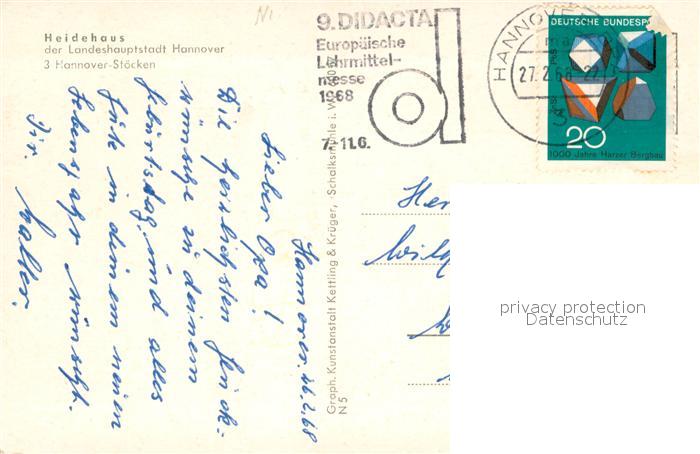 Heidehaus
der Landeshauptstadt Hannover
3 Hannover-Stöcken
9. DIDACTA
Europäische
Lehrmittel-
messe
1968
7.-11.6.
d
HANNOVER
27.2.68-
DEUTSCHE BUNDESP
20
1000 Jahre Harzer Bergbau
Graph. Kunstanstalt Kettling & Krüger, Schalksmühle i. W.
N 5
Hannover, 26.2.68
Lieber Opa!
Die herzlichsten Glück-
wünsche zu deinem
Geburtstag und alles
Gute in deinem neuen
Lebensjahr wünscht
Dir
privacy protection
Datenschutz